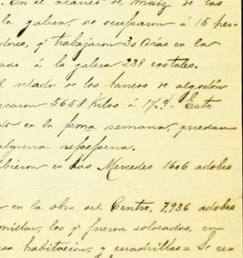 En el acarreo de maiz de las
la galera, se ocuparon á 15 he-
dores, q' trabajaron 30 dias en la
á la galera 238 costales.
l velado de los bancos de algodón
caron 5658 Kilos á
Este
do en la pma semana, quedan
alguna repepena.
bieron en Las Mercedes 1606 adobes
en la obra del Centro, 7,936 adobes
millar, los q' fueron colocados, en
habitacion, y cuadrillas = Se re